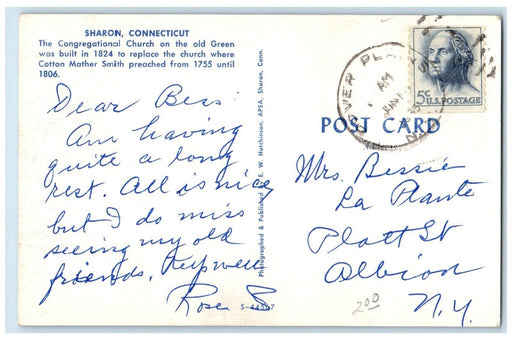 SHARON, CONNECTICUT
The Congregational Church on the old Green
was built in 1824 to replace the church where
Cotton Mather Smith preached from 1755 until
1806.
Dear Bess:
Am having
quite a long
rest. All is nice
but I do miss
seeing my old
friends. Keep well
Rose
S-44567
Photographed & Published by E. W. Hutchinson, APSA, Sharon, Conn.
DOVER PLAINS
AM
N.Y.
5c U.S. POSTAGE
POST CARD
Mrs. Bessie
La Plante
Platt St
Albion
N.Y.
200